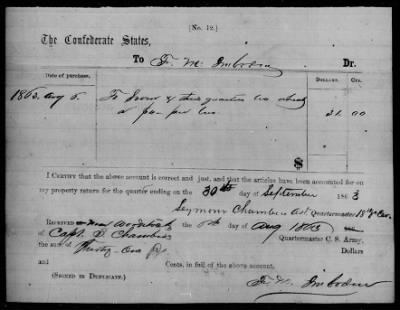 [No. 12.]
The Confederate States,
To F. M. Imboden Dr.
Date of purchase. Dollars. Cts.
1863. Aug 6. To Seven & three quarters
4 pr. per 31 00
$
I Certify that the above account is correct and just, and that the articles have been accounted for on
my property return for the quarter ending on the 30th day of September 1863
Seymour Chambers Act. Quartermaster
Received the 6th day of Aug 1863
of Capt. S. Chambers Quartermaster C. S. Army,
the sum of Thirty-One Dollars
and Cents, in full of the above account.
(Signed in Duplicate.) F. M. Imboden